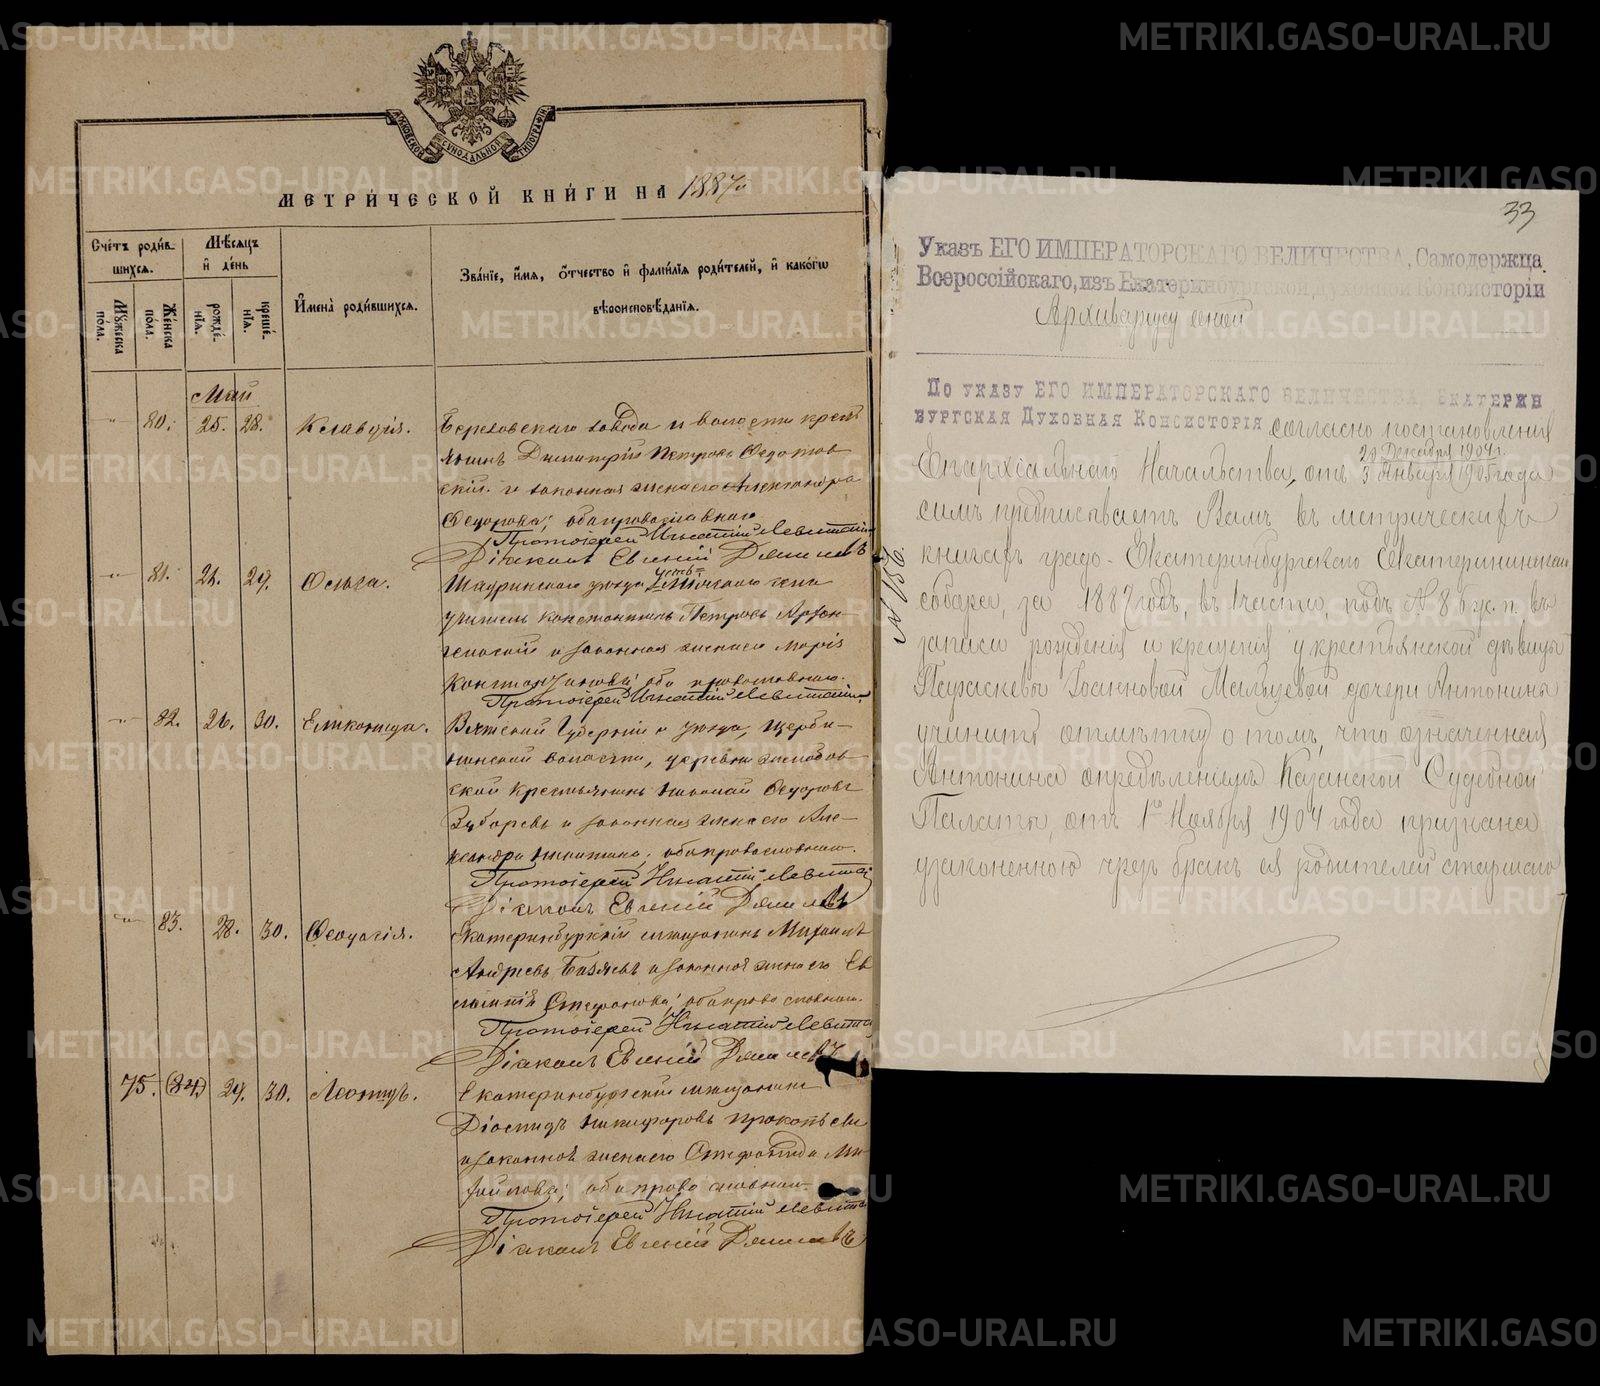 МОСКОВСКОЙ СѴНОДАЛЬНОЙ ТИПОГРАФІИ
МЕТРИ́ЧЕСКОЙ КНИ́ГИ НА 1887 г.
Сче́тъ роди́в-
шихсѧ.
Мѣ́сѧцъ
и҆ де́нь
Му́жеска
по́ла.
Же́нска
по́ла.
рожде́-
нїѧ.
креще́-
нїѧ.
И҆мена̀ роди́вшихсѧ.
Зва́нїе, и҆́мѧ, ѻ҆́тчество и҆ фами́лїѧ роди́телей, и҆ како́гѡ
вѣроисповѣ́данїѧ.
Май
80. 25. 28. Клавдія. Березовскаго завода и волости крест
янинъ Димитрій Петровъ Федотов
скій и законная жена его Александра
Федорова; оба православнаго
Протоіерей Игнатій Левитскій
Діаконъ Евгеній
81. 24. 29. Ольга. Шадринскаго уѣзда Усть= села
учитель Константинъ Петровъ Архан
гельскій и законная жена его Марія
Константинова; оба православнаго.
Протоіерей Игнатій Левитскій
82. 26. 30. Еликонида. Вятской Губерніи и уѣзда, Щерби-
нинской волости, деревни
ской крестьянинъ Николай Федоровъ
Зубаревъ и законная жена его Але-
ксандра Никитина; оба православнаго.
Протоіерей Игнатій Левитскій
Діаконъ Евгеній
83. 28. 30. Феодосія. Екатеринбургскій мѣщанинъ Михаилъ
Андреевъ и законная жена его Ев
лампія Стефанова; оба православнаго.
Протоіерей Игнатій Левитскій
Діаконъ Евгеній
75. (84) 29. 30. Леонидъ. Екатеринбургскій мѣщанинъ
Діомидъ Никифоровъ Прокопьевъ
и законная жена его Стефанида Ми
хайлова; оба православнаго
Протоіерей Игнатій Левитскій
Діаконъ Евгеній
33
Указъ ЕГО ИМПЕРАТОРСКАГО ВЕЛИЧЕСТВА, Самодержца
Всероссійскаго, изъ Екатеринбургской Духовной Консисторіи
Архиваріусу оной
По указу ЕГО ИМПЕРАТОРСКАГО ВЕЛИЧЕСТВА, Екатерин
бургская Духовная Консисторія согласно постановленія
20 Декабря 1904 г.
Епархіальнаго Начальства, отъ 3 Января 1905 года
симъ предписываетъ Вамъ въ метрическихъ
книгахъ градо-Екатеринбургскаго Екатерининскаго
собора, за 1887 годъ, въ 1 части, подъ № 86 ж. п. въ
записи рожденія и крещенія у крестьянской дѣвицы
Параскевы Іоанновой Мальцевой дочери Антонины
учинить отмѣтку о томъ, что означенная
Антонина опредѣленіемъ Казанской Судебной
Палаты, отъ 1го Ноября 1904 года признана
узаконенною чрезъ бракъ ея родителей
№ 156.
METRIKI.GASO-URAL.RU